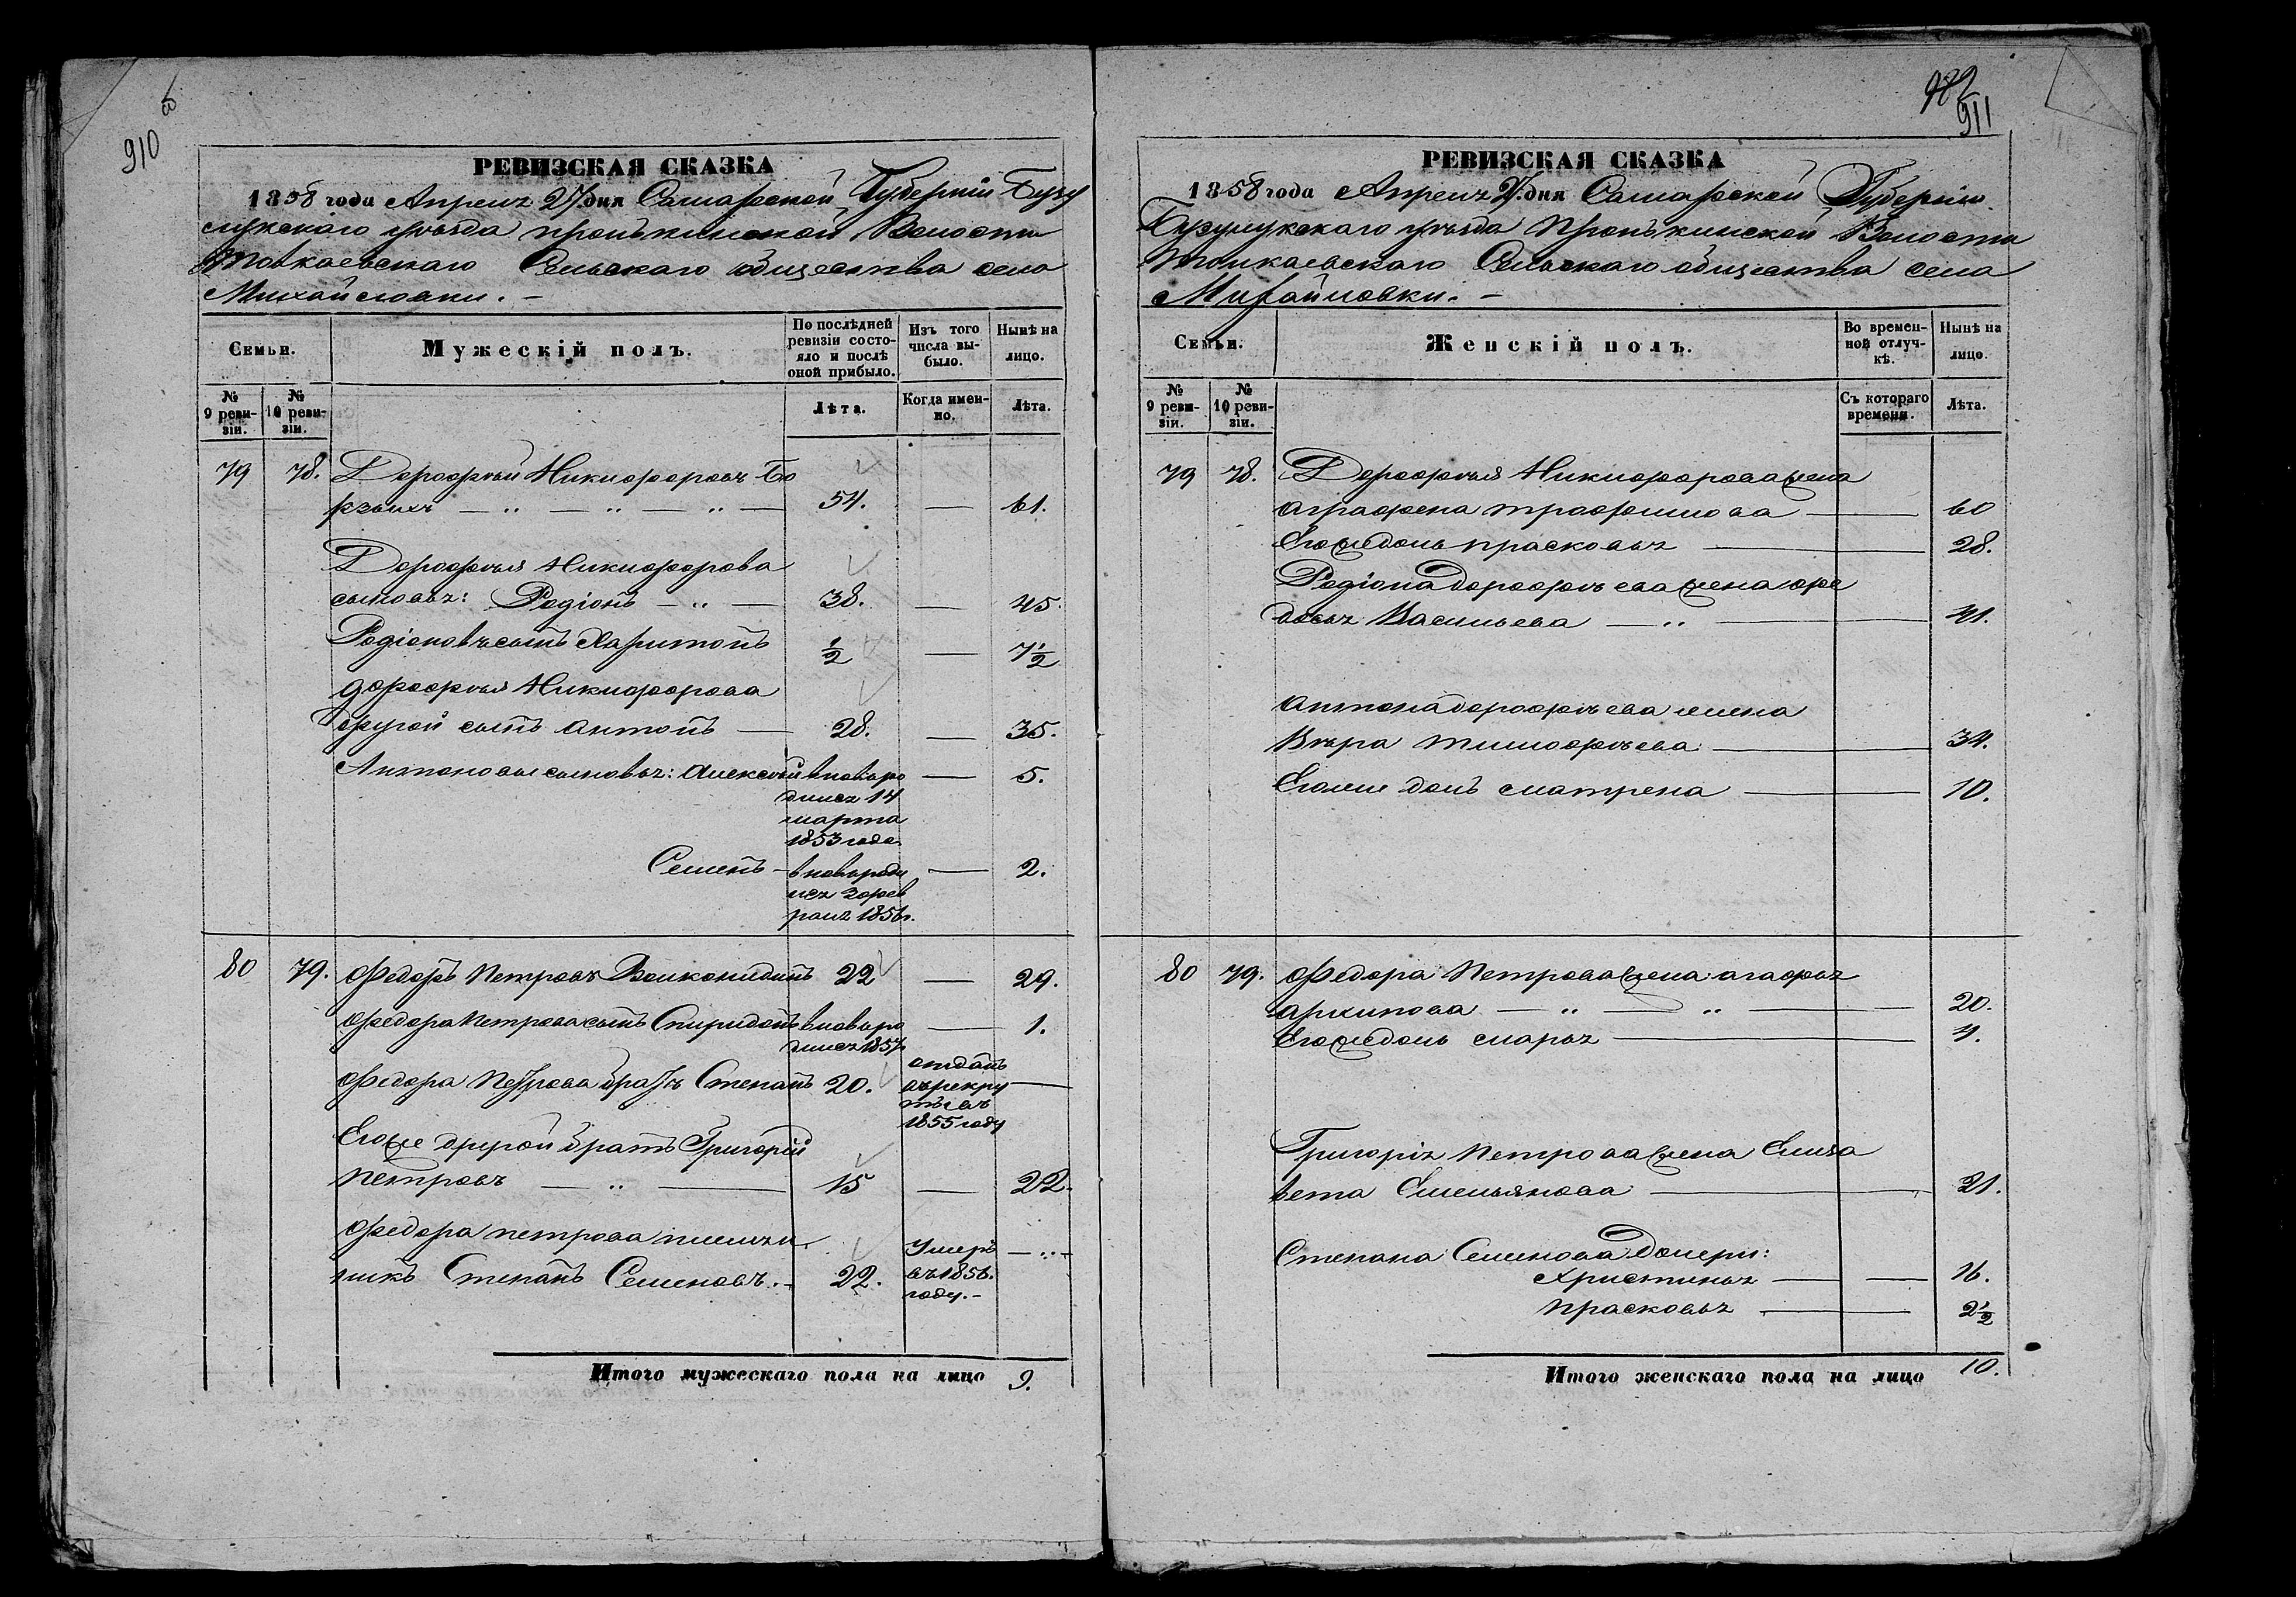 910 об
РЕВИЗСКАЯ СКАЗКА
1858 года Апреля 27 дня Самарской Губернии Бузу
лукскаго уѣзда Пронькинской Волости
Токаевскаго Сельскаго общества села
Михайловки. –
Семьи.
Мужескій полъ.
По послѣдней ревизіи состояло и послѣ оной прибыло.
Изъ того числа выбыло.
Нынѣ на лицо.
№ 9 ревизіи.
№ 10 ревизіи.
Лѣта.
Когда именно.
Лѣта.
79 78. Дорофѣй Никифоровъ Бо
рзыхъ — „ — „ — „ — 54. — 61.
Дорофѣя Никифорова
сыновья: Родіонъ — „ — 38. — 45.
Родіоновъ сынъ Харитонъ ½ — 7½
Дорофѣя Никифорова
другой сынъ Антонъ — 28. — 35.
Антоновы сыновья: Алексѣй вновь ро — 5.
дился 14
марта
1853 года
Семенъ — вновь роди — 2.
лся 3 фев
раля 1856г.
80 79. Федоръ Петровъ 22 — 29.
Федора Петрова сынъ Спиридонъ вновь ро — 1.
дился 1857
Федора Петрова братъ Степанъ 20. отданъ —
в рекру
ты въ
1855 году
Его же другой братъ Григорій
Петровъ — „ — 15 — 22.
Федора Петрова племян
никъ Степанъ Семеновъ. – 22. Умеръ — „ —
въ 1856.
году. –
Итого мужескаго пола на лицо 9.
982
911
РЕВИЗСКАЯ СКАЗКА
1858 года Апреля 27 дня Самарской Губернии
Бузулукскаго уѣзда Пронькинской Волости
Токаевскаго Сельскаго общества села
Михайловки. –
Семьи.
Женскій полъ.
Во временной отлучкѣ.
Нынѣ на лицо.
№ 9 ревизіи.
№ 10 ревизіи.
Съ котораго времени.
Лѣта.
79 78. Дорофѣя Никифорова жена
Аграфена Трофимова — 60
Его же дочь Прасковья — 28.
Родіона Дорофѣева жена Фе
досья Васильева — „ — 41.
Антона Дорофѣева жена
Вѣра Тимофѣева — 34.
Его же дочь Матрена — 10.
80 79. Федора Петрова жена Агафья
Архипова — „ — „ — 20.
Его же дочь Марья — 4.
Григорія Петрова жена Елиза
вета Емельянова — 21.
Степана Семенова дочери:
Христинья — — 16.
Прасковья — 2½
Итого женскаго пола на лицо 10.